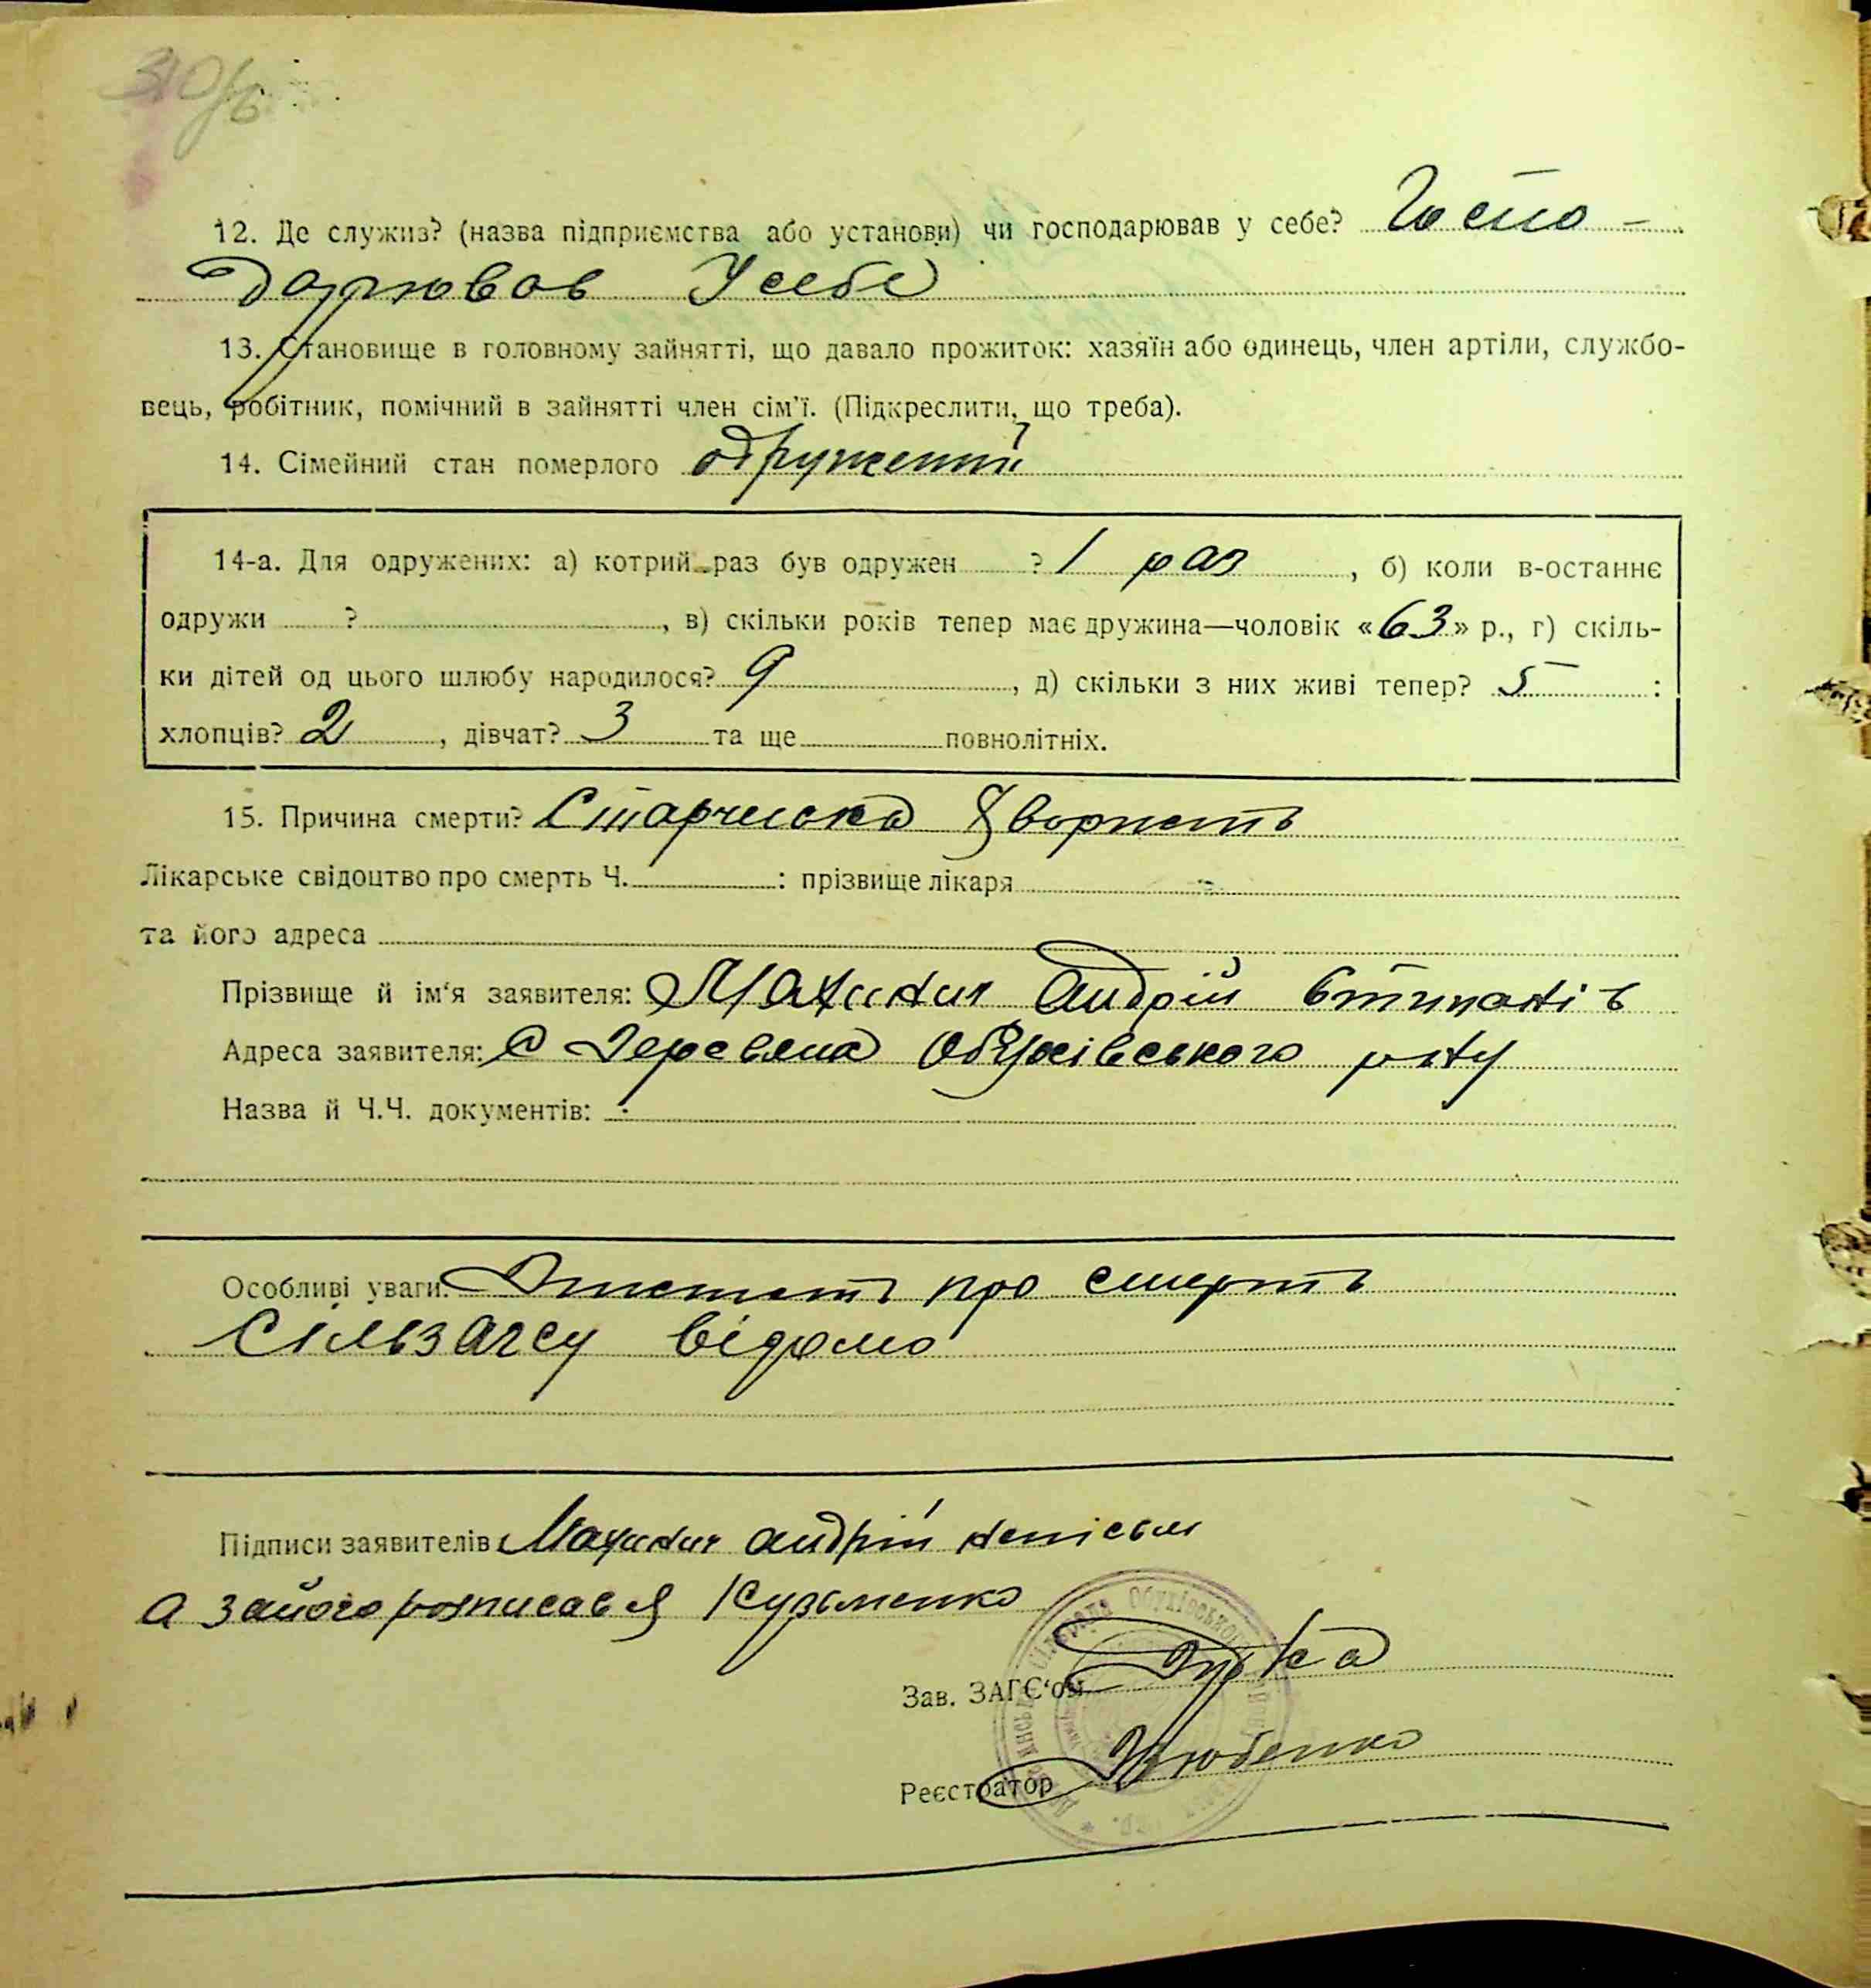 310/б
12. Де служив? (назва підприємства або установи) чи господарював у себе? Госпо-
дарював У себе
13. Становище в головному зайнятті, що давало прожиток: хазяїн або одинець, член артіли, службо-
вець, робітник, помічний в зайнятті член сім'ї. (Підкреслити, що треба).
14. Сімейний стан померлого одружений
14-а. Для одружених: а) котрий раз був одружен ? 1 раз , б) коли в-останнє
одружи ? , в) скільки років тепер має дружина—чоловік «63» р., г) скіль-
ки дітей од цього шлюбу народилося? 9 , д) скільки з них живі тепер? 5 :
хлопців? 2 , дівчат? 3 та ще повнолітніх.
15. Причина смерти? Старческа Хворість
Лікарське свідоцтво про смерть Ч. : прізвище лікаря
та його адреса
Прізвище й ім'я заявителя: Махиня Андрій
Адреса заявителя: с Деревяна Обухівського р-ну
Назва й Ч.Ч. документів:
Особливі уваги: про смерть
Сільзагсу відомо
Підписи заявителів Махиня Андрій непісьм
а занього розписався Кузьменко
Зав. ЗАГС'ом
Реєстратор
сільрада Обухівського